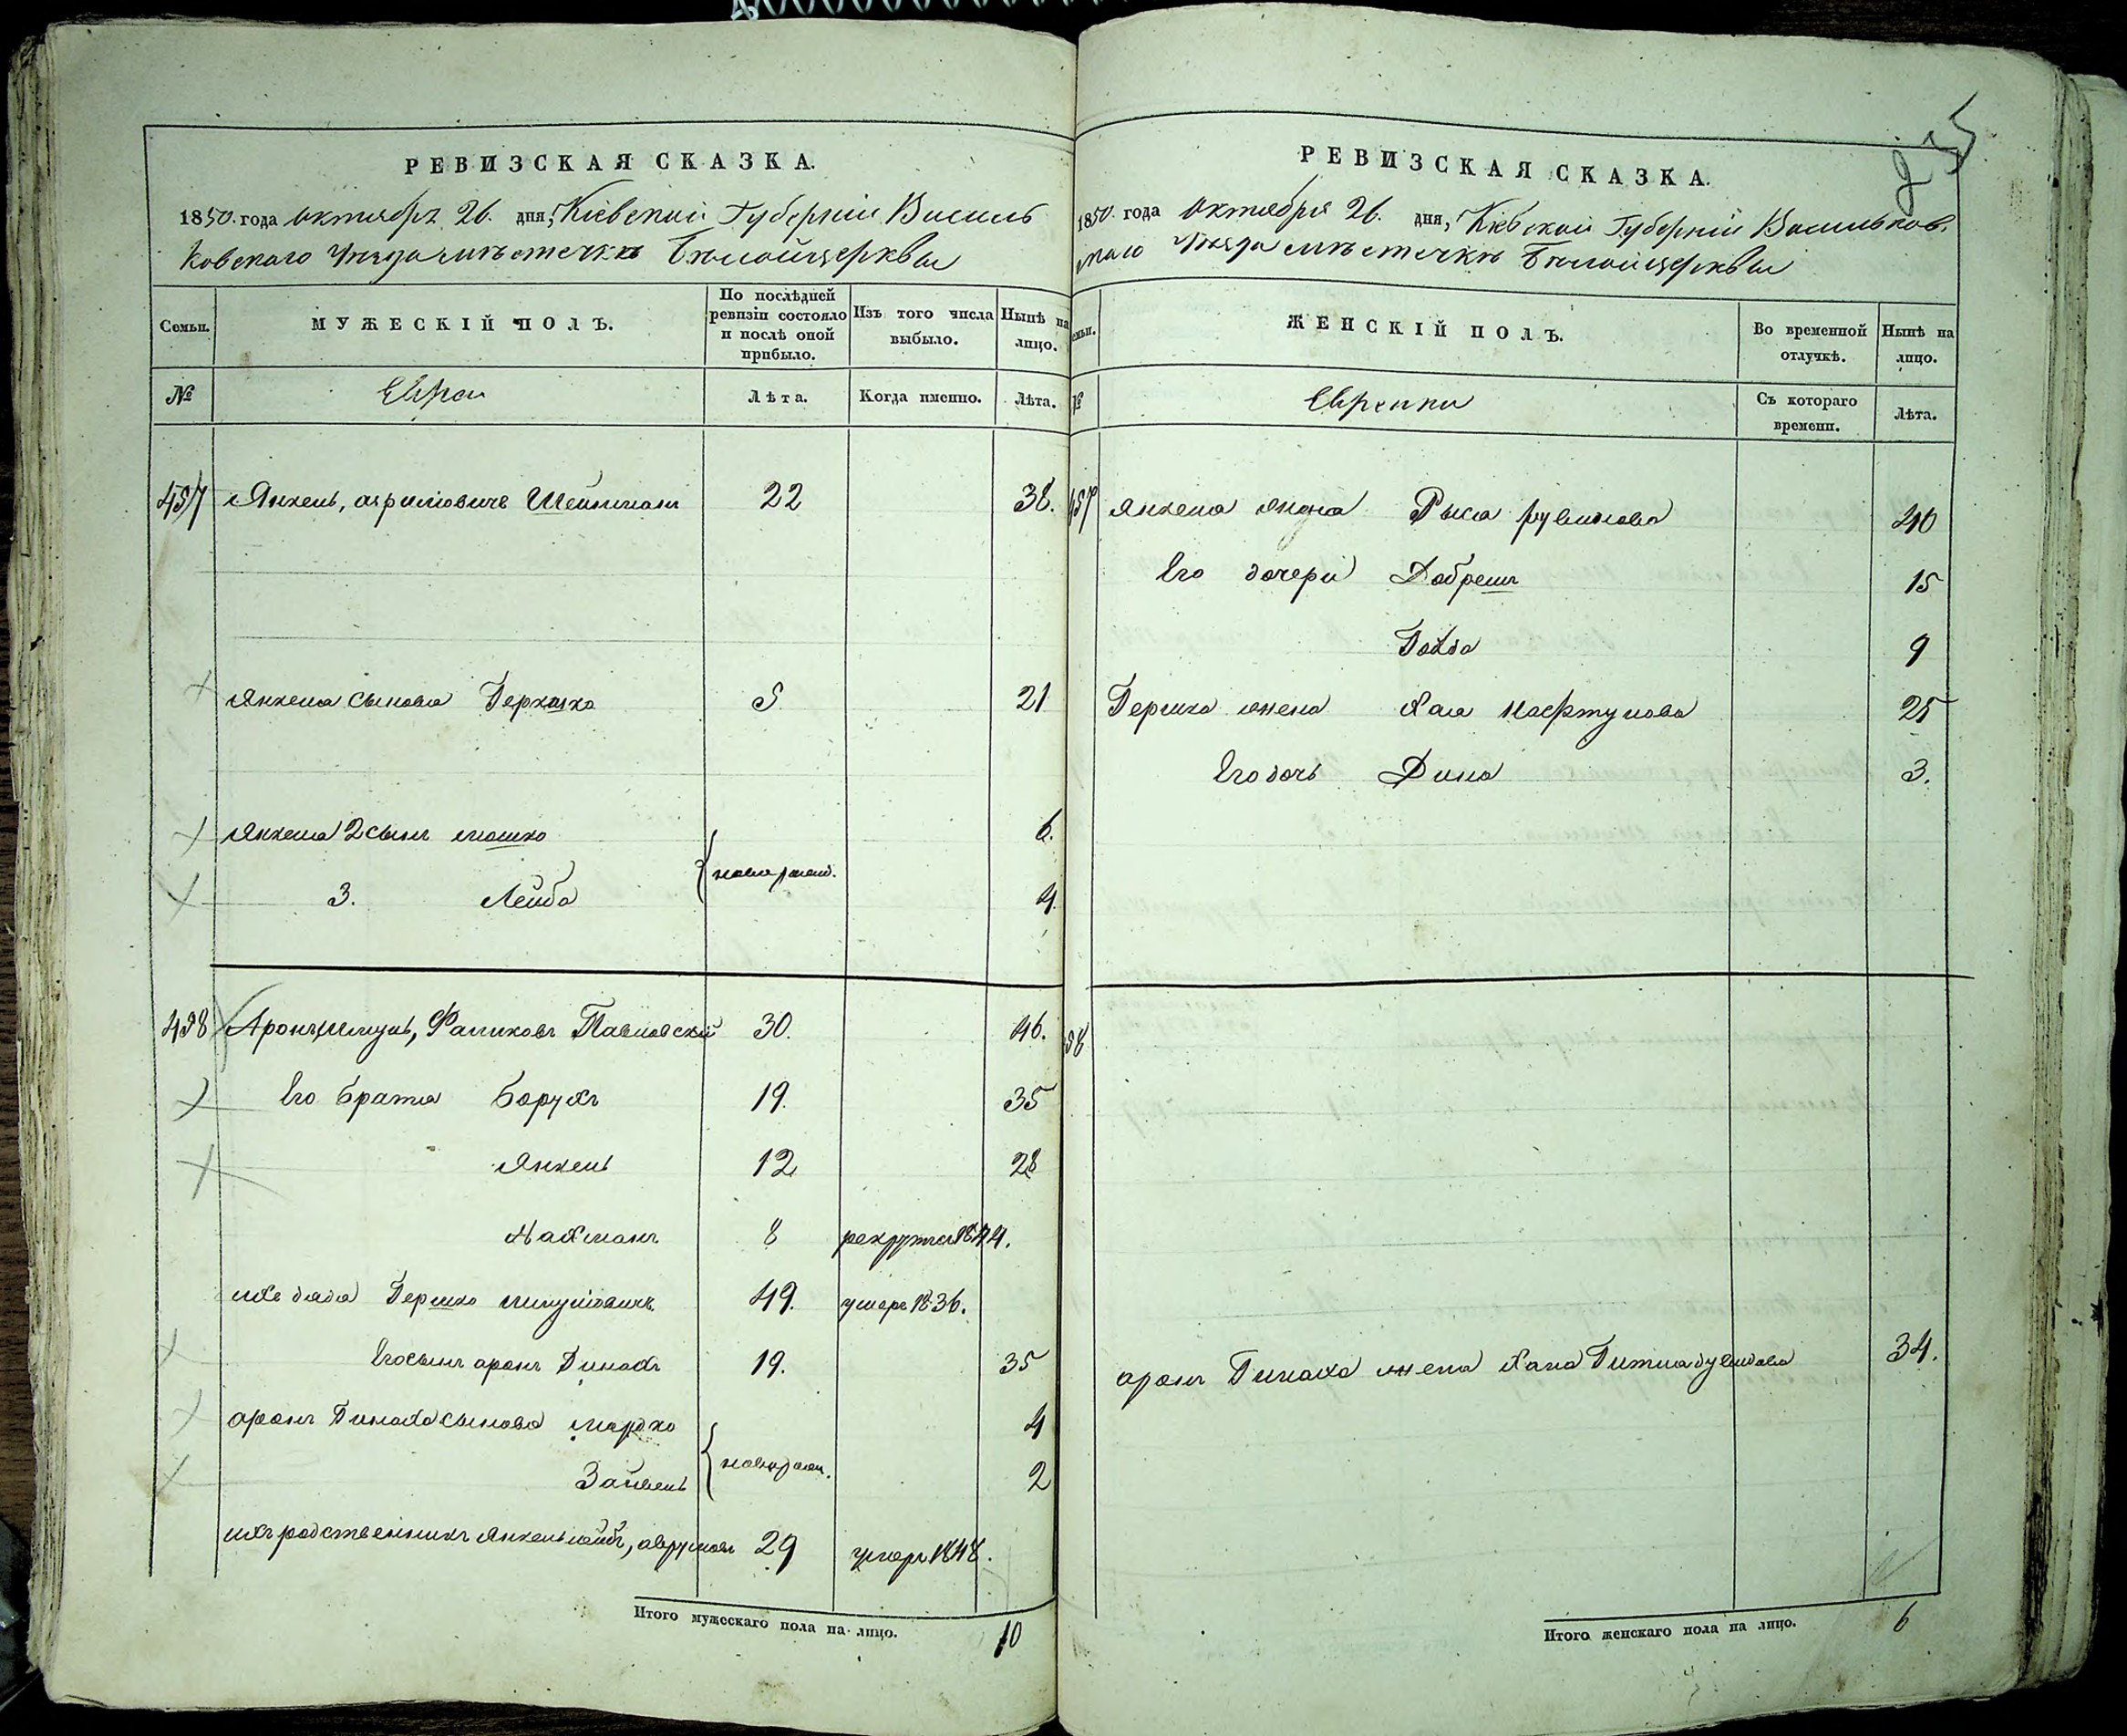 РЕВИЗСКАЯ СКАЗКА.
1850 года октября 26. дня, Кіевской Губерніи Василь
ковскаго Уѣзда мѣстечка Бѣлойцеркви
Семьи.
МУЖЕСКІЙ ПОЛЪ.
По послѣдней ревизіи состояло и послѣ оной прибыло.
Изъ того числа выбыло.
Нынѣ на лицо.
№
Евреи
Лѣта.
Когда именно.
Лѣта.
457 Янкель, Шейнманъ 22 38.
Янкеля сынова Гершко 5 21
Янкеля 2 сынъ мошко 6.
новорожд.
3. Лейба 4.
458 Аронъ шмуль, Фаликовъ Павловскій 30. 46.
Его братья Борухъ 19. 35
Янкель 12 28
Нахманъ 8 рекрутъ 1844.
ихъ дядя Гершко шмулiовичъ 49. умеръ 1836.
Его сынъ аронъ Пинахъ 19. 35
аронъ Пинаха сынова мордко 4
новорож.
Зайвель 2
ихъ родственникъ Янкель лейбъ, аврумовъ 29 умеръ 1848.
Итого мужескаго пола на лицо. 10
25
РЕВИЗСКАЯ СКАЗКА.
1850 года Октября 26. дня, Кіевской Губерніи Васильков,
скаго Уѣзда мѣстечка Бѣлойцеркви
Семьи.
ЖЕНСКІЙ ПОЛЪ.
Во временной отлучкѣ.
Нынѣ на лицо.
№
Еврейки
Съ котораго времени.
Лѣта.
457 Янкеля жена Рыся рувинова 40
Его дочери Добрешъ 15
Голда 9
Гершка жена Хая Нафтулова 25
Его дочь Дина 3.
58
аронъ Пинаха жена Хана Гитля дувидова 34.
Итого женскаго пола на лицо. 6